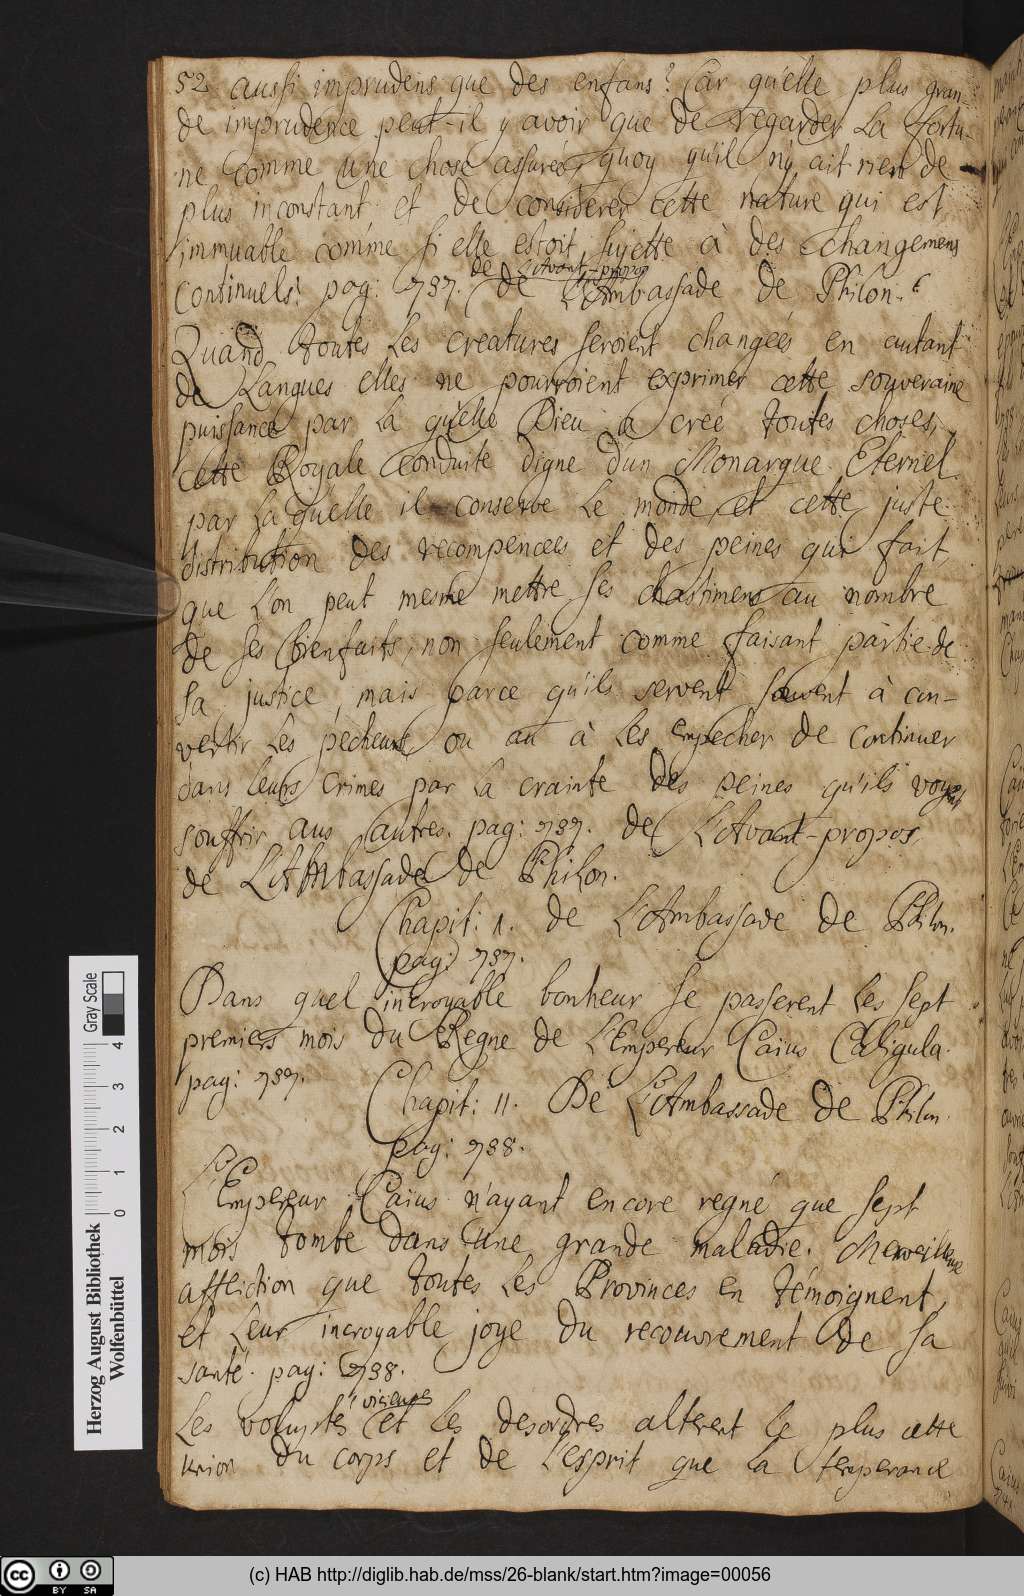 52 aussi imprudens que des enfans? Car qu'elle plus gran-
de imprudence peut-il y avoir que de regarder la fortu-
ne comme une chose assurée, quoy qu'il n'y ait rien de
plus inconstant, et de considerer cette nature qui est
immuable comme si elle estoit sujette à des changemens
continuels? pag: 737. de L'Avant-propos de L'Ambassade de Philon.
Quand toutes les creatures seroient changées en autant
de Langues elles ne pourroient exprimer cette souveraine
puissance par la qu'elle Dieu a creé toutes choses,
cette Royale conduite digne d'un Monarque Eternel
par la qu'elle il conserve le monde, et cette juste
distribution des recompences et des peines qui fait,
que l'on peut mesme mettre ses chastimens au nombre
de ses bienfaits, non seulement comme faisant partie de
sa justice, mais parce qu'ils servent souvent à con-
vertir les pecheurs ou au à les empecher de continuer
dans leurs crimes par la crainte des peines qu'ils voyent
souffrir aus autres. pag: 737. de L'Avant-propos
de L'Ambassade de Philon.
Chapit: 1. de L'Ambassade de Philon.
pag: 737.
Dans quel incroyable bonheur se passerent les sept
premiers mois du Regne de L'Empereur Caius Caligula.
pag: 737.
Chapit: 11. De L'Ambassade de Philon.
pag: 738.
L'Empereur Caius n'ayant encore regné que sept
mois tombe dans une grande maladie. Merveilleuse
affliction que toutes les Provinces en témoignent,
et leur incroyable joye du recouvrement de sa
santé. pag: 738.
Les voluptés vicieuses et les desordres alterent le plus cette
union du corps et de l'esprit que la temperance
Gray Scale
0 1 2 3 4
Herzog August Bibliothek
Wolfenbüttel
cc BY SA
(c) HAB http://diglib.hab.de/mss/26-blank/start.htm?image=00056